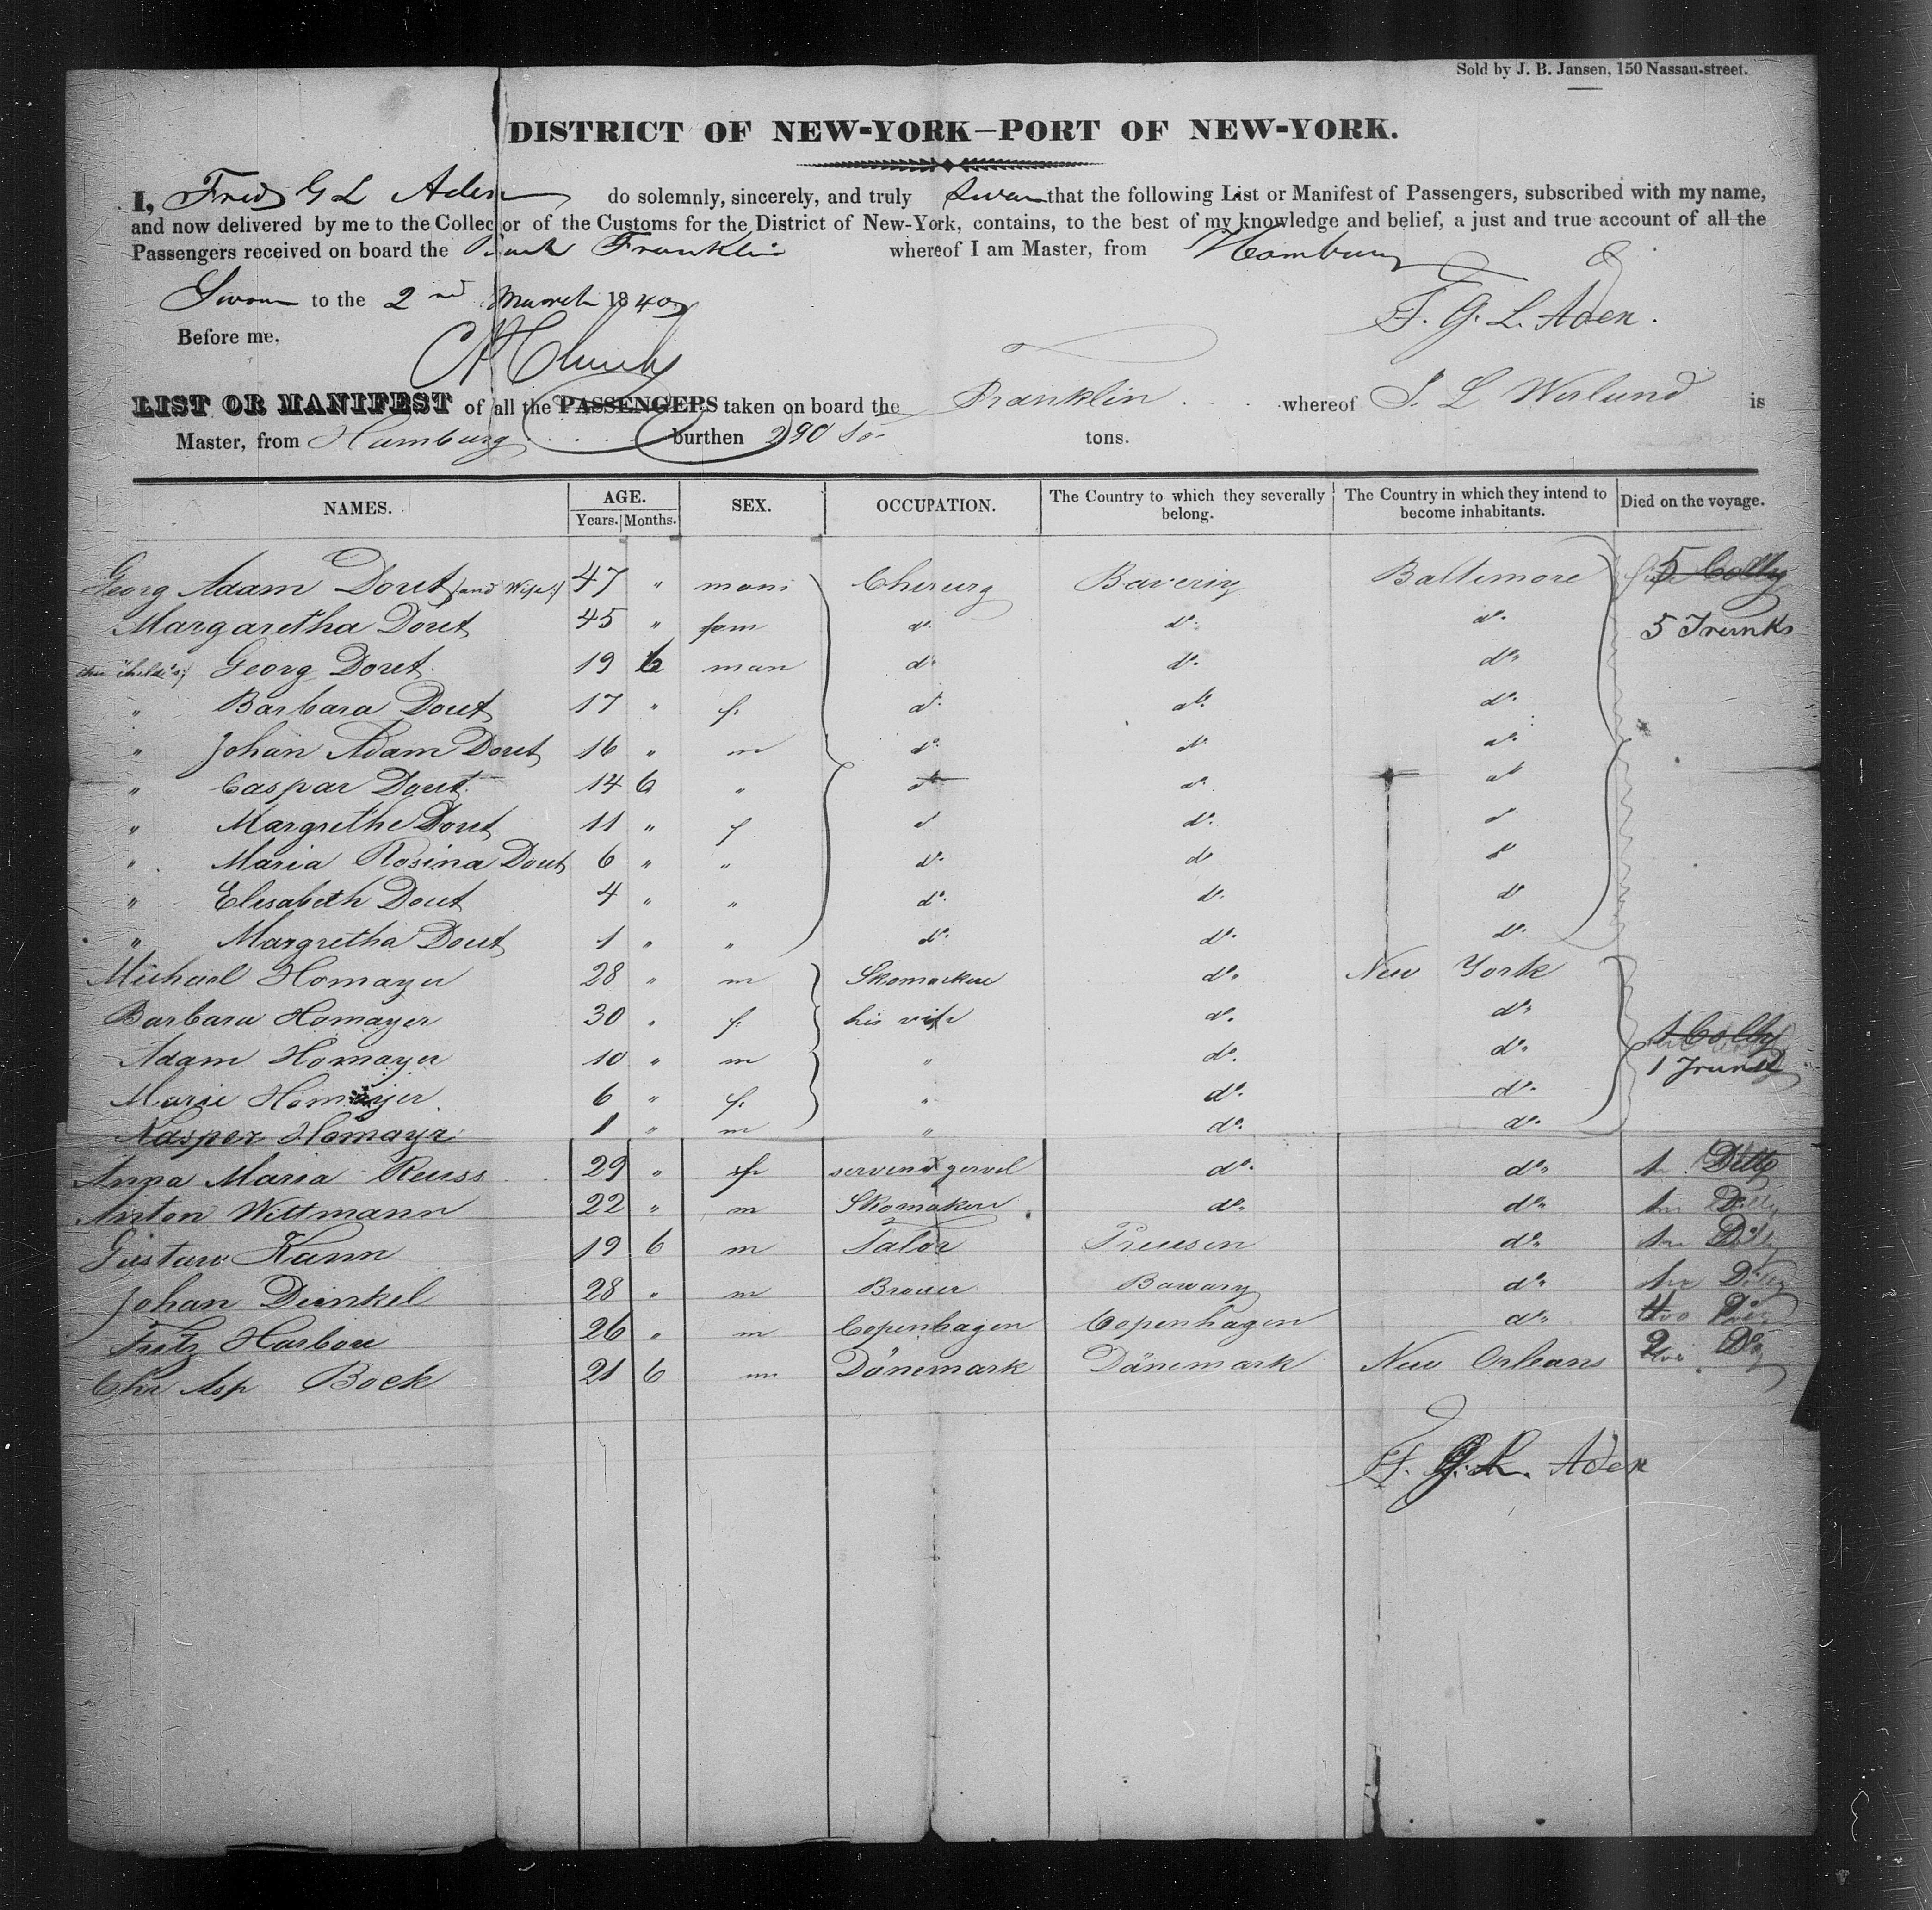 Sold by J. B. Jansen, 150 Nassau-street.
DISTRICT OF NEW-YORK—PORT OF NEW-YORK.
I, Fred G L Aden do solemnly, sincerely, and truly Swear that the following List or Manifest of Passengers, subscribed with my name,
and now delivered by me to the Collector of the Customs for the District of New-York, contains, to the best of my knowledge and belief, a just and true account of all the
Passengers received on board the Bark Franklin whereof I am Master, from Hamburg
Sworn to the 2nd March 1840
F. G. L. Aden.
Before me,
LIST OR MANIFEST of all the PASSENGERS taken on board the Franklin whereof is
Master, from Hamburg burthen 290 tons.
NAMES. AGE. SEX. OCCUPATION. The Country to which they severally belong. The Country in which they intend to become inhabitants. Died on the voyage.
Years. Months.
Georg Adam Doret (and Wife) 47 " man Cherurg Bavering Baltimore 5 Colly
Margaretha Doret 45 " fem do. do. do. 5 Trunks
Georg Doret 19 6 man do. do. do.
" Barbara Doret 17 " f. do. do. do.
" Johan Adam Doret 16 " m do. do. do.
" Caspar Doret 14 6 " do do. do
" Margrethe Doret 11 " f do do. do
" Maria Rosina Doret 6 " " do. do do
" Elisabeth Doret 4 " " do. do. do
" Margretha Doret 1 " " do. do. do.
Michael Homayer 28 " m Skomacker do. New York
Barbara Homayer 30 " f. his vife do. do. 1 Colly
Adam Homayer 10 " m " do. do. 1 Trunk
Marie Homayer 6 " f. " do. do.
Kasper Homayr 1 " m " do. do.
Anna Maria Reuss 29 " f do. do. Ditto
Anton Wittmann 22 " m Skomaker do. do.
Gustav Kann 19 6 m Talor Preusen do.
Johan Dinkel 28 " m Brouer Bawary do.
Fritz Harboe 26 " m Copenhagen Copenhagen do.
Chr Asp Bock 21 6 m Dänemark Dänemark New Orleans 2 Do
F. G. L. Aden